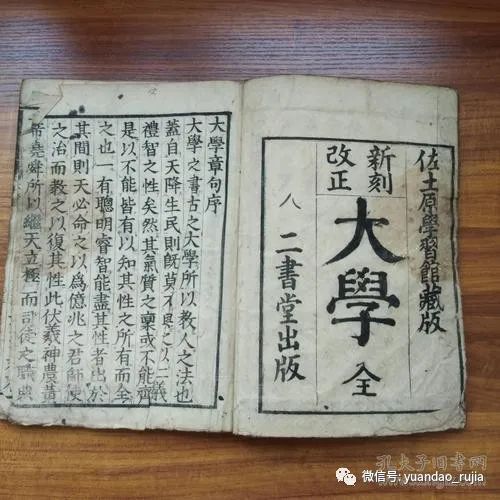 佐土原學習館藏版
新刻
改正
大學 全
八 二書堂出版
大學章句序
大學之書古之大學所以教人之法也
蓋自天降生民則既莫不與之以仁義
禮智之性矣然其氣質之稟或不能齊
是以不能皆有以知其性之所有而全
之也一有聰明睿智能盡其性者出於
其間則天必命之以爲億兆之君師使
之治而教之以復其性此伏羲神農黃
帝堯舜所以繼天立極而司徒之職典
孔夫子旧书网
微信号: yuandao_rujia